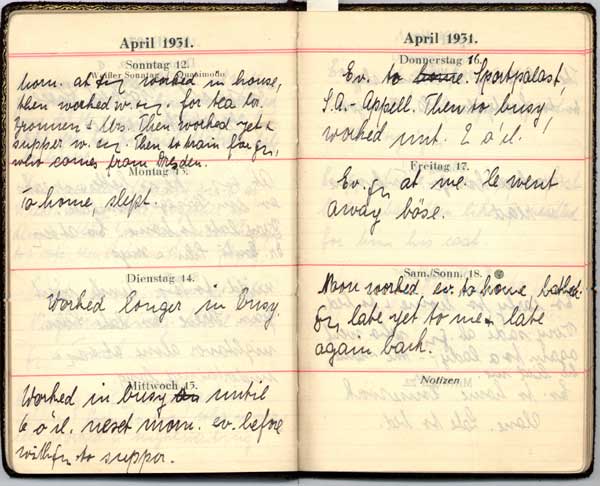 April 1931.
Sonntag 12.
Weißer Sonntag Quasimodo
morn. at worked in house,
then worked w. for tea Dr.
Then worked yet &
supper w. Then to train for
who comes from Dresden.
Montag 13.
To home, slept.
Dienstag 14.
Worked longer in busy.
Mittwoch 15.
Worked in busy until
6 o'cl. next morn. ev. before
with to supper.
April 1931.
Donnerstag 16.
Ev. to home. Sportpalast,
S.A.-Appell. Then to busy,
worked unt. 2 o'cl.
Freitag 17.
Ev. at me. He went
away böse.
Sam./Sonn. 18.
Morn worked ev. to home bathed.
late yet to me & late
again back.
Notizen